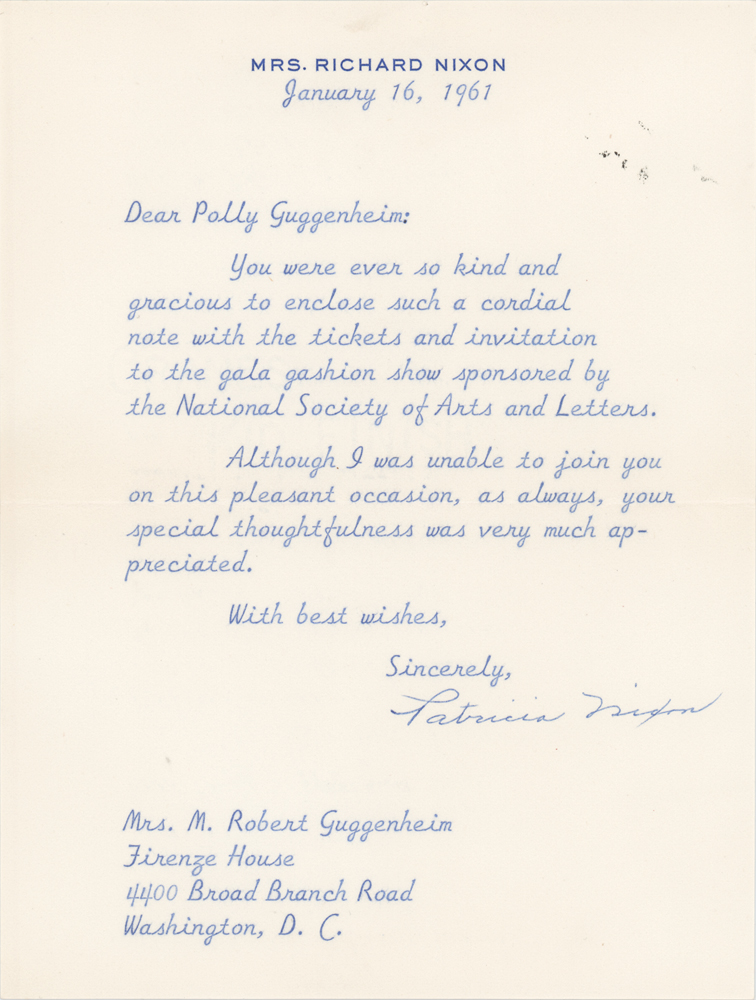 MRS. RICHARD NIXON
January 16, 1961
Dear Polly Guggenheim:
You were ever so kind and
gracious to enclose such a cordial
note with the tickets and invitation
to the gala gashion show sponsored by
the National Society of Arts and Letters.
Although I was unable to join you
on this pleasant occasion, as always, your
special thoughtfulness was very much ap-
preciated.
With best wishes,
Sincerely,
Patricia Nixon
Mrs. M. Robert Guggenheim
Firenze House
4400 Broad Branch Road
Washington, D. C.